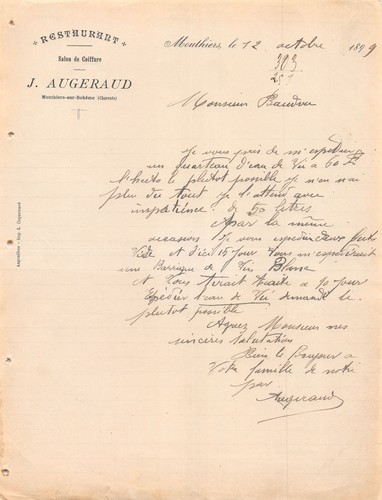 RESTAURANT
Salon de Coiffure
J. AUGERAUD
Mouthiers-sur-Bohême (Charente)
Mouthiers, le 12 octobre 1899
303
257
Monsieur
Je vous pries de m'expédier
un quarteau d'eau de Vie a 60 F
l'hecto le plutot possible Je n'en nai
plus du tout je l'attend avec
impatience. de 50 litres
Apar la même
occasion Je vous expédie deux futs
Vide et d'ici 15 jour Vous m'expédirait
une Barrique de Vin Blanc
et Vous tirait traite a 90 jour
Expédier eau de Vie demande le
plutot possible
Agréez Monsieur mes
sincères salutation
Bien le Bonjour a
Votre famille de notre
par
Augeraud
Angoulême - Imp. L. Coquemard